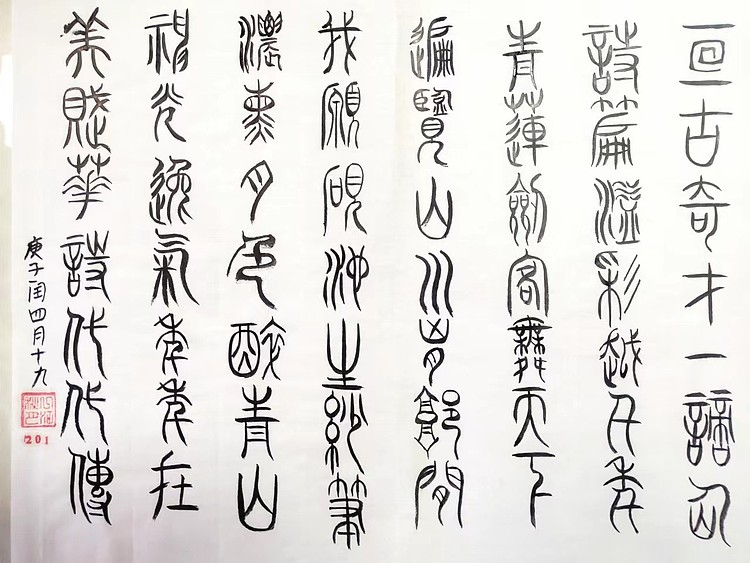 亘古奇才一謫仙
詩篇溢彩越千年
青蓮劍客舞天下
遍覽山川間
我願硯池生妙筆
濃月色醉青山
光逸氣年年在
美賦華詩代代傳
庚子閏四月十九
201